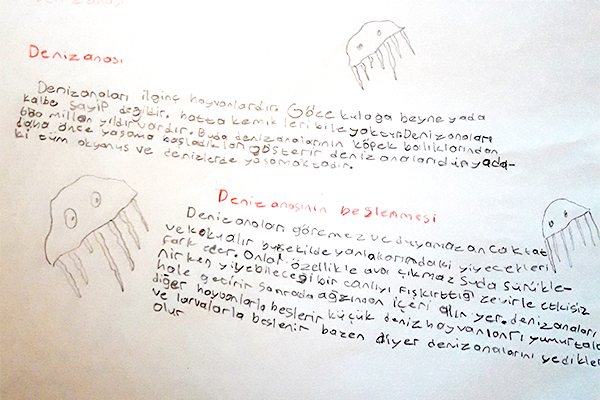 Denizanası
Denizanaları ilginç hayvanlardır. Göce kulağa beyne yada
kalbe sayip değildir. hatta kemikleri bile yoktur. Denizanaları
600 millon yıldır vardır. Buda denizanalarının köpek balıklarından
daha önce yaşama başladıkları gösterir denizanaları dünyada-
ki tüm okyanus ve denizlerde yaşamaktadır.
Denizanasının beslenmesi
Denizanaları göremez ve duyamaz ancak tat
ve koku alır bu şekilde yanlakarındaki yiyecekleri
fark eder. Onlar özellikle ava çıkmaz suda sürükle-
nirken yiyebileceği bir canlıyı fışkırttığı zehirle etkisiz
hale getirir sonrada ağzından içeri alır yer. denizanaları
diğer hayvanlarla beslenir küçük deniz hayvanları yumurtala
ve larvalarla beslenir bazen diyer denizanalarını yedikler
olur